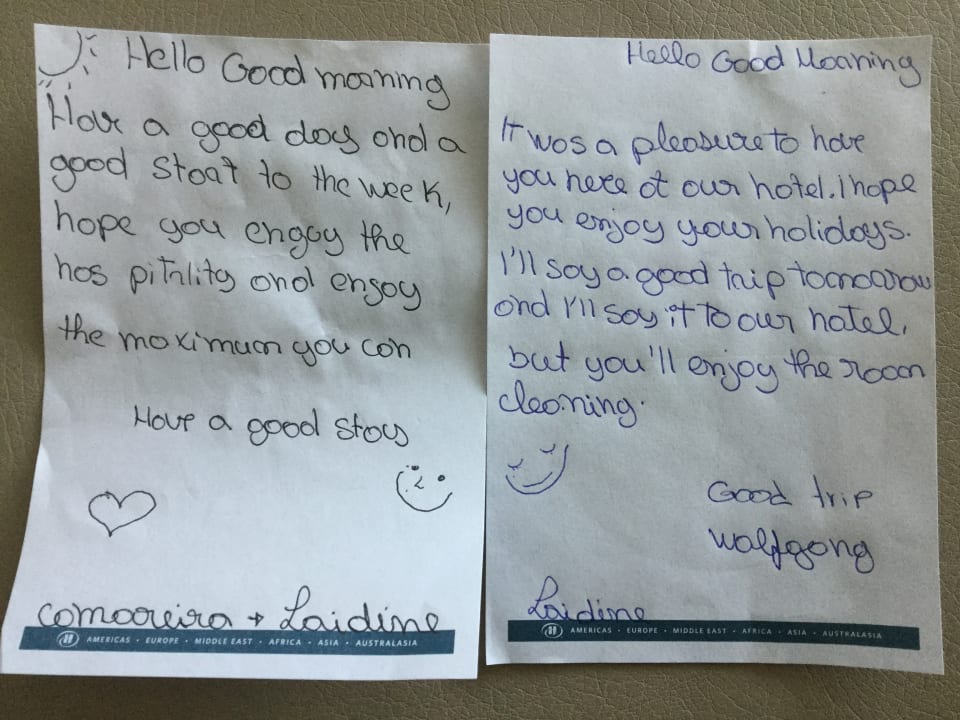 Hello Good morning
Have a good day and a
good start to the week,
hope you engoy the
hos pitality and engoy
the maximum you can
Have a good stay
camareira + Laidine
AMERICAS · EUROPE · MIDDLE EAST · AFRICA · ASIA · AUSTRALASIA
Hello Good Morning
It was a pleasure to have
you here at our hotel. I hope
you enjoy your holidays.
I'll say a good trip tomorrow
and I'll say it to our hotel,
but you'll enjoy the room
cleaning.
Good trip
Walfgang
Laidine
AMERICAS · EUROPE · MIDDLE EAST · AFRICA · ASIA · AUSTRALASIA